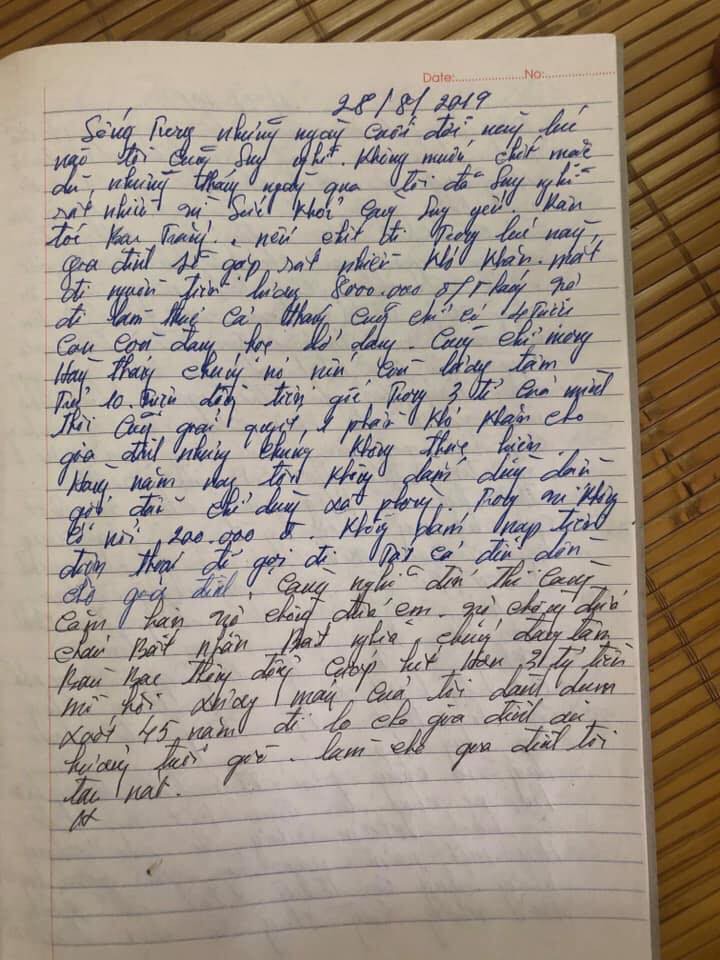 Date:..................No:..................
28/8/2019
Sống Trong những ngày cuối đời này lúc
nào tôi cũng suy nghĩ. Không muốn chết mặc
dù, những tháng ngày qua tôi đã suy nghĩ
rất nhiều sức khỏe càng suy yếu.
tới nếu chết đi Trong lúc này,
gia đình sẽ gặp rất nhiều khó khăn. mất
đi nguồn tiền lương 8000.000 đ/Tháng
đi làm thuê cả tháng cũng chỉ có 4 triệu
con còn đang học dở dang. Cũng chỉ mong
tháng chúng nó còn lương tâm
Trả 10 triệu tiền gốc Trong 3 tỉ của mình
thôi cũng giải quyết 1 phần khó khăn cho
gia đình nhưng chúng không thực hiện.
năm nay tôi không dám dùng dầu
gội đầu chỉ dùng xà phòng. Trong không
có nổi 200.000 đ. Không dám nạp tiền
điện thoại để gọi đi Tất cả đều dồn
cho gia đình. Càng nghĩ đến thì càng
căm hận vợ chồng đứa em. vợ chồng đứa
cháu Bất nhân Bất nghĩa chúng đang tâm
thông đồng cướp hết hơn 3 tỷ tiền
mồ hôi xương máu của tôi dành dụm
suốt 45 năm để lo cho gia đình
tuổi già. làm cho gia đình tôi
tan nát.